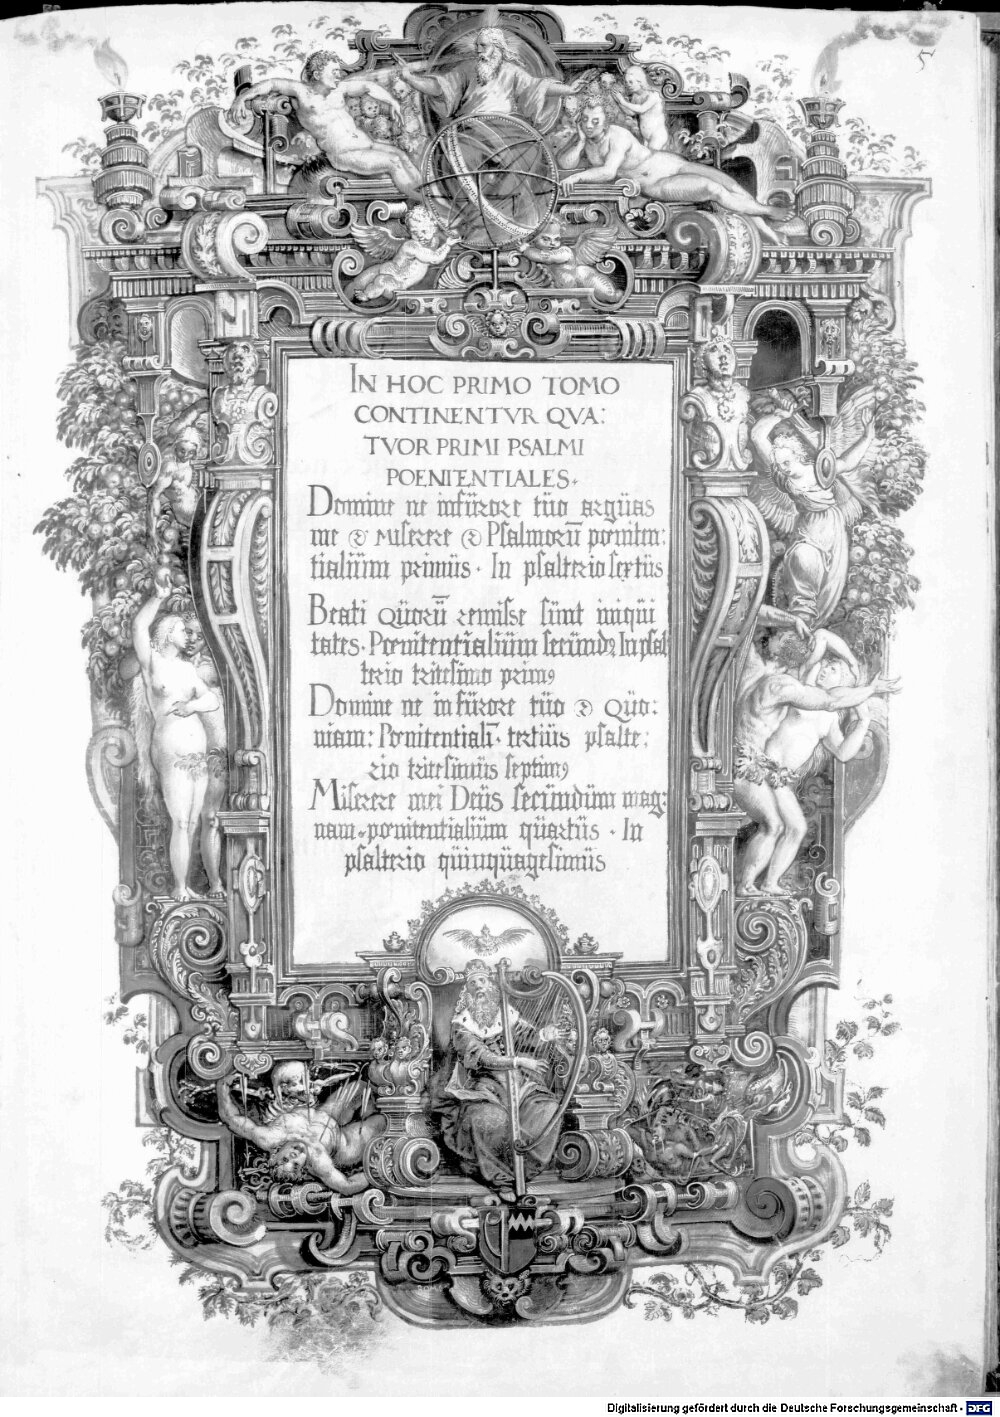 5
IN HOC PRIMO TOMO
CONTINENTVR QVA:
TVOR PRIMI PSALMI
POENITENTIALES.
Domine ne infürore tüo argüas
me & Miserere & Psalmorū pœniten:
tialiüm primüs. In psalterio sextüs
Beati Qüorū remisse sünt iniqüi
tates. Pœnitentialiüm secündꝰ In psal
terio tricesimo primꝰ
Domine ne in fürore tüo & Qüo:
niam: Pœnitentialī. tertiüs psalte:
rio tricesimüs septimꝰ
Miserere mei Deüs secündüm mag:
nam. pœnitentialiüm qüartüs. In
psalterio qüinqüagesimüs
Digitalisierung gefördert durch die Deutsche Forschungsgemeinschaft - DFG